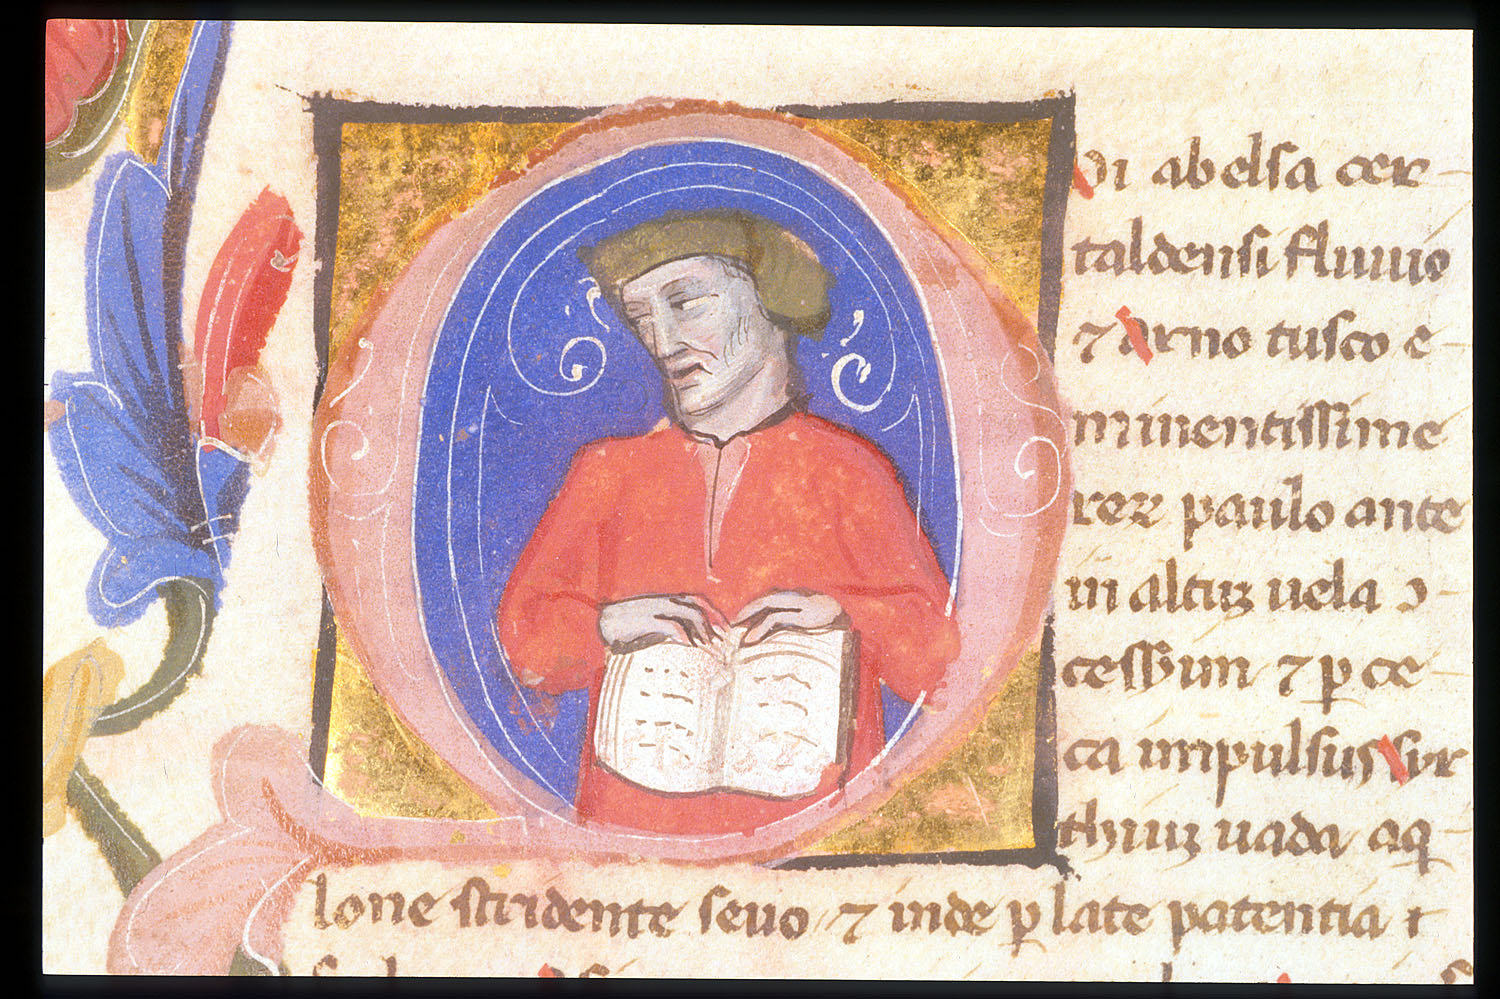 QVi abelsa cer-
taldensi fluuio
⁊ Arno tusco e-
minentissime
rex paulo ante
in altuꝫ uela ↄ-
cesserim ⁊ ꝑ ce-
ca impulsus syr
thiuꝫ uada aq-
lone stridente seuo ⁊ inde ꝑ late patentia t